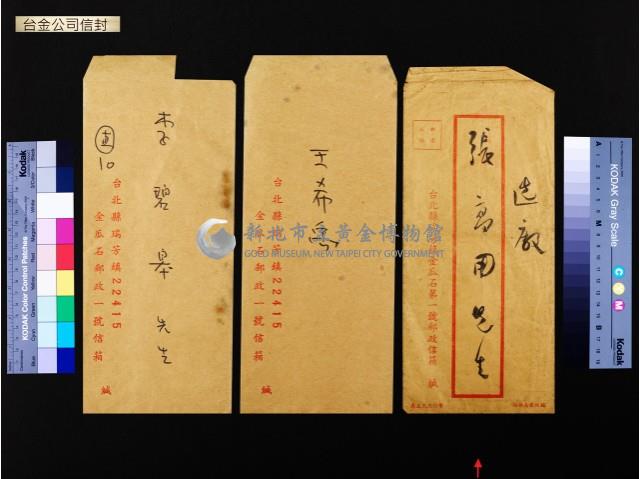 台金公司信封
李碧皋先生
直
10
台北縣瑞芳鎮22415
金瓜石郵政一號信箱 緘
王希
台北縣瑞芳鎮22415
金瓜石郵政一號信箱 緘
造廠
張高田先生
台北縣
金瓜石第一號郵政信箱 緘
新北市立黃金博物館
GOLD MUSEUM, NEW TAIPEI CITY GOVERNMENT
KODAK Color Control Patches
Kodak
Blue
Cyan
Green
Yellow
Red
Magenta
White
Black
KODAK Gray Scale
Kodak
C
Y
M
A
M
B